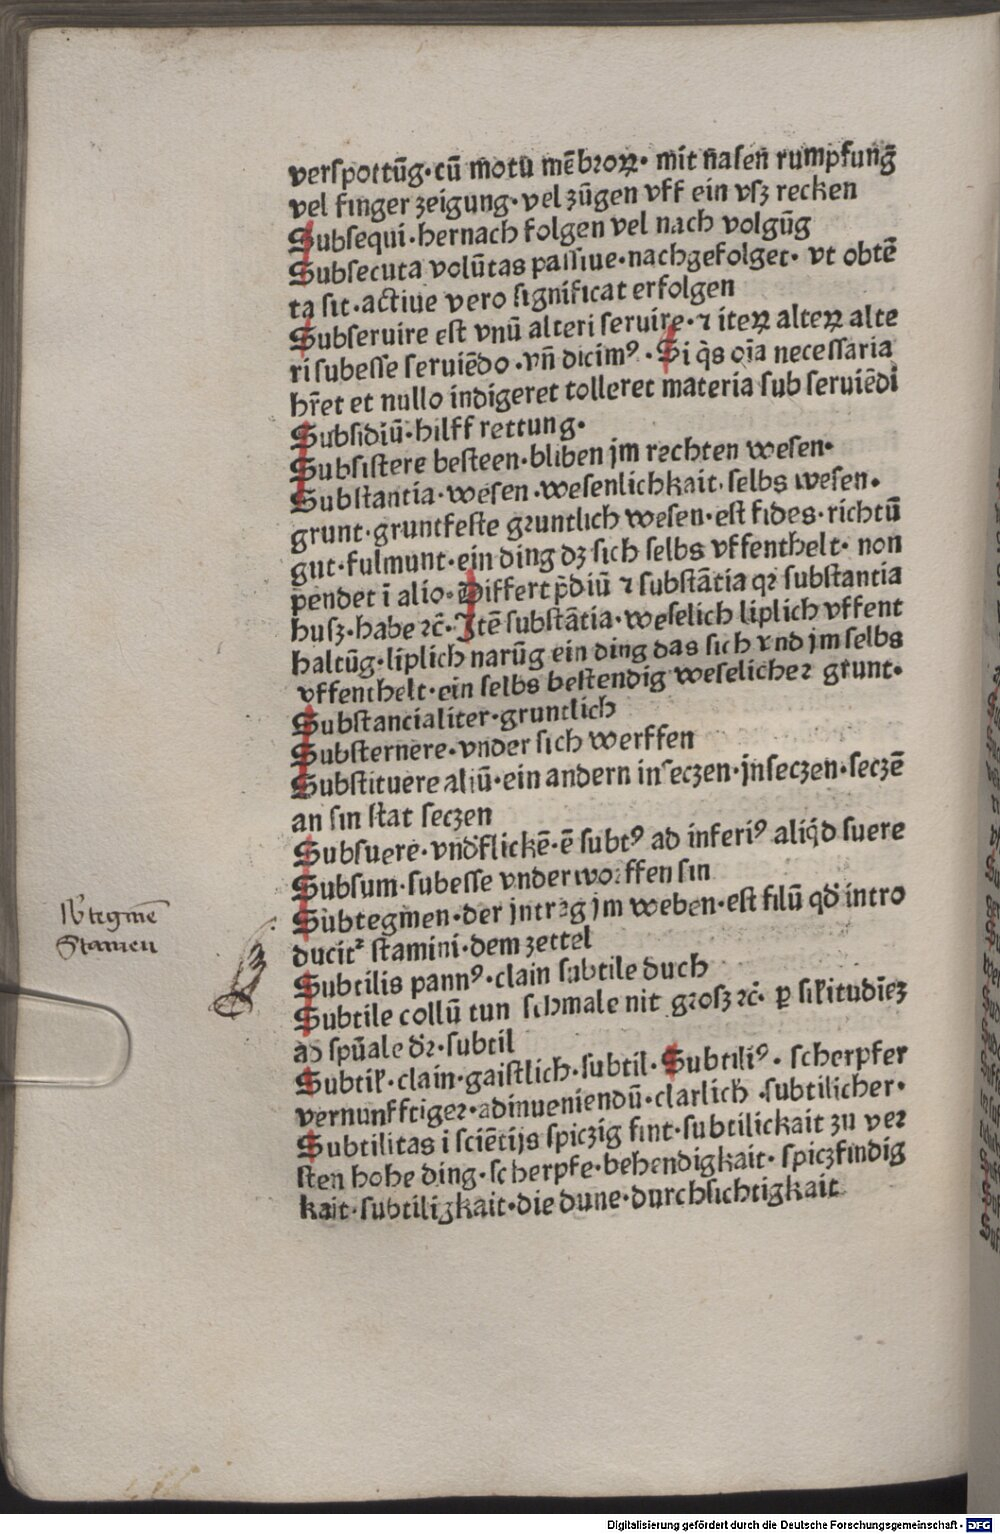 verſpottūg·cū motu mēbroꝝ· mit naſen rumpfung
vel finger zeigung·vel zūgen vff ein vſʒ recken
Subſequi·hernach folgen vel nach volgūg
Subſecuta volūtas paſſiue·nachgefolget· vt obtē
ta ſit·actiue vero ſignificat erfolgen
Subſeruire eſt vnū alteri ſeruire·⁊ iteꝝ alteꝝ alte
ri ſubeſſe ſeruiēdo·vn̄ dicimꝰ·Si q̄s oīa neceſſaria
hr̄et et nullo indigeret tolleret materia ſub ſeruiēdi
Subſidiū·hilff rettung·
Subſiſtere beſteen·bliben jm rechten weſen·
Subſtantia·weſen·weſenlichkait·ſelbs weſen·
grunt·gruntfeſte gꝛuntlich weſen·eſt fides·richtū
gut·fulmunt·ein ding dʒ ſich ſelbs vffenthelt· non
pendet ī alio·Differt p̄diū ⁊ ſubſtātia qꝛ ſubſtantia
huſʒ·habe ⁊c̄·Itē ſubſtātia·weſelich liplich vffent
haltūg·liplich narūg ein ding das ſich vnd jm ſelbs
vffenthelt·ein ſelbs beſtendig weſelicheꝛ grunt·
Subſtancialiter·gruntlich
Subſternere·vnder ſich werffen
Subſtituere aliū·ein andern inſeczen·jnſeczen·ſeczē
an ſin ſtat ſeczen
Subſuere·vnd̓flickē·ē ſubtꝰ ad inferiꝰ aliq̇d ſuere
Subſum·ſubeſſe vnderwoꝛffen ſin
Subtegmen·der jntrag jm weben·eſt filū qd̓ intro
ducitᷣ ſtamini·dem zettel
Subtilis pannꝰ·clain ſubtile duch
Subtile collū tun ſchmale nit gꝛoſʒ ⁊c̄· ꝑ ſil̓itudīeʒ
ad ſpūale dꝛ·ſubtil
Subtil̓·clain·gaiſtlich·ſubtil·Subtiliꝰ· ſcherpfer
vernunfftigeꝛ·adinueniendū·clarlich·ſubtilicher·
Subtilitas i ſciētijs ſpiczig fint·ſubtilickait zu veꝛ
ſten hohe ding·ſcherpfe·behendigkait· ſpiczfindig
kait·ſubtiligkait·die dune·durchſichtigkait
Sb̓tegmē
Stamen
Digitalisierung gefördert durch die Deutsche Forschungsgemeinschaft - DFG